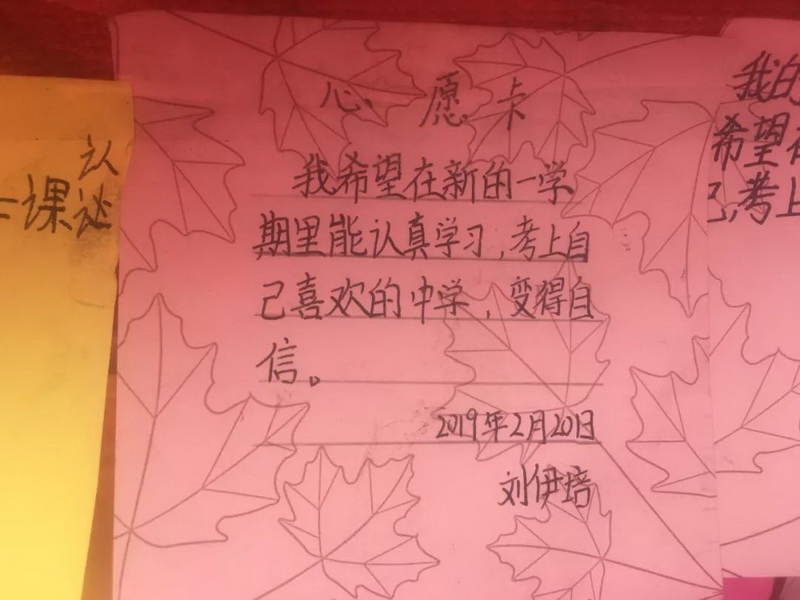 心愿卡
我希望在新的一学
期里能认真学习,考上自
己喜欢的中学,变得自
信。
2019年2月20日
刘伊培
认
课
我的
希望
,考上